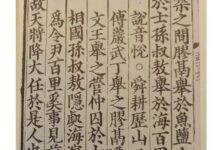 之閒膠鬲舉於魚鹽
於士孫叔敖舉於海百
說音悅○舜耕歷山
傅巖武丁舉之膠鬲
文王舉之管仲囚於
相國孫叔敖隱處海
爲令尹百里奚事見
故天將降大任於是人也